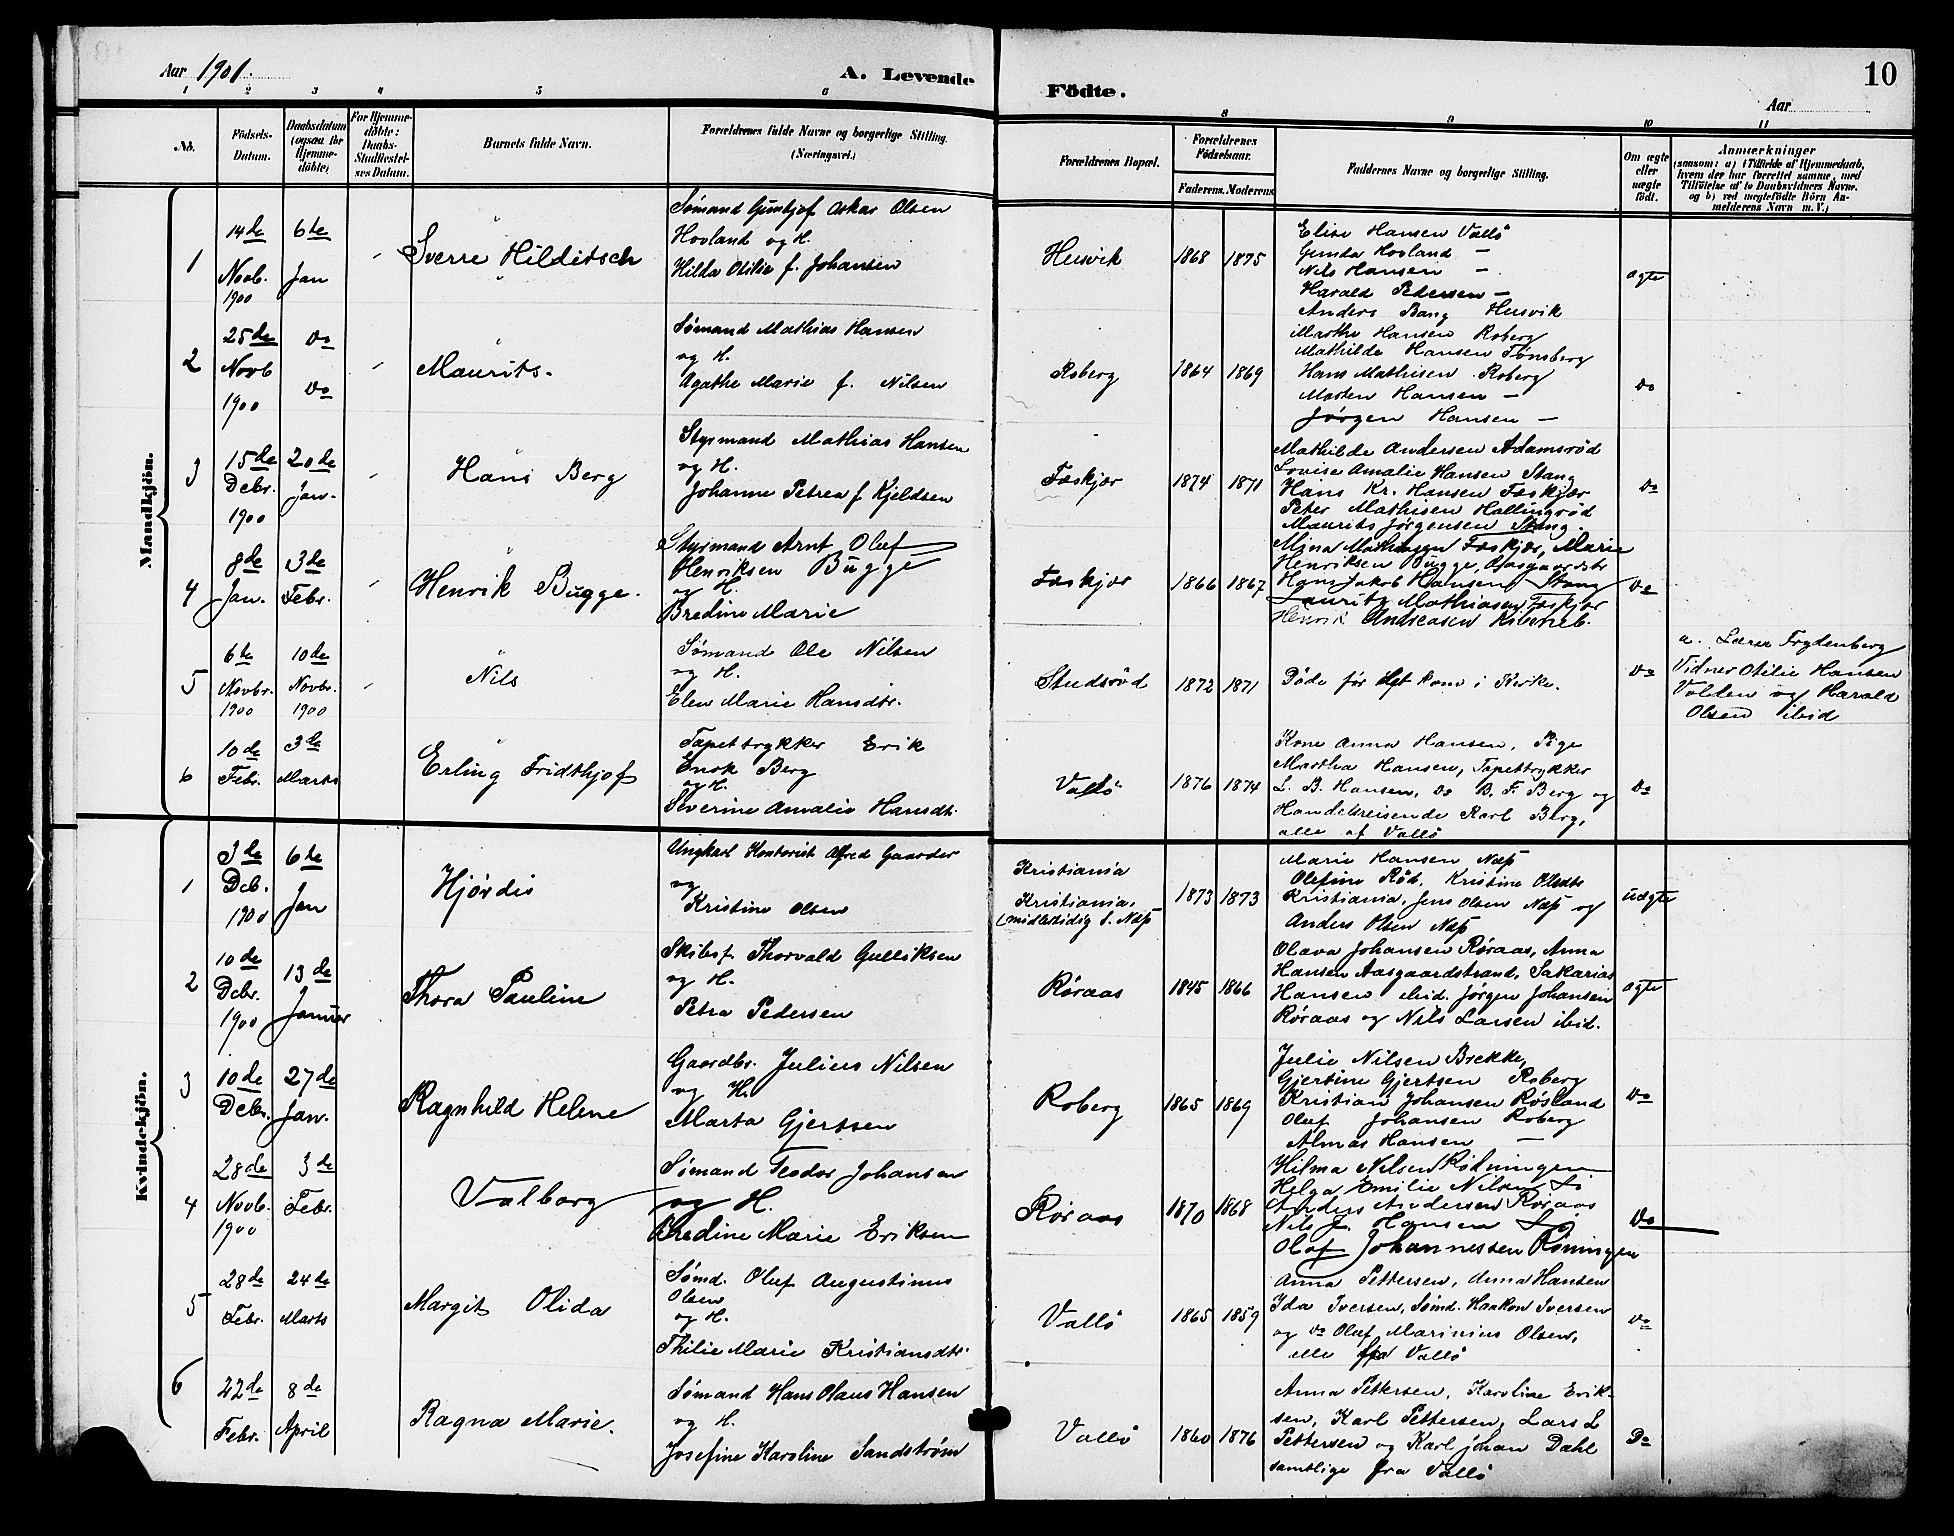 Aar 1901.
A. Levende
Födte.
Aar
10
1 2 3 4 5 6 8 9 10 11
No.
Födsels-
Datum.
Daabsdatum
(ogsaa for
Hjemme-
döbte)
For Hjemme-
döbte:
Daabs-
Stadfæstel-
ses Datum.
Barnets fulde Navn.
Forældrenes fulde Navne og borgerlige Stilling.
(Næringsvei.)
Forældrenes Bopæl.
Forældrenes
Födselsaar.
Faderens. Moderens.
Faddernes Navne og borgerlige Stilling.
Om ægte
eller
uægte
födt.
Anmærkninger
(saasom: a) i Tilfælde af Hjemmedaab,
hvem der har forrettet samme, med
Tilföielse af to Daabsvidners Navne.
og b) ved uægtefödte Börn An-
melderens Navn m. V.)
Mandkjön.
1
14de
Novb.
1900
6te
Jan
Sverre Hilditsch
Sømand Guntjof Oskar Olsen
Hovland og H.
Hilda Otilie f. Johansen
Husvik
1868 1875
Elise Hansen Vallö
Gunda Hovland —
Nils Hansen —
Harald Pedersen —
Anders Bang Husvik
ægte
2
25de
Novb
1900
do
do
Maurits.
Sømand Mathias Hansen
og H.
Agathe Marie f. Nilsen
Roberg
1864 1869
Marthe Hansen Roberg
Mathilde Hansen Tønsberg
Hans Mathisen Roberg
Morten Hansen —
Jørgen Hansen —
do
3
15de
Debr.
1900
20de
Jan.
Hans Berg
Styrmand Mathias Hansen
og H.
Johanne Petrea f Kjeldsen
Fæskjær
1874 1871
Mathilde Andersen Adamsrød
Lovise Amalie Hansen Stang
Hans Kr. Hansen Fæskjær
Peter Mathisen Hallingrød
Maurits Jørgensen Stang.
do
4
8de
Jan.
3de
Febr.
Henrik Bugge.
Styrmand Arnt Oluf
Henriksen Bugge
og H.
Bredine Marie
Fæskjær
1866 1867
Mina Mathiassen Fæskjær, Marie
Henriksen Bugge,
Hans Jakob Hansen Stang
Lauritz Mathiasen Fæskjær
Henrik Andreasen
do
5
6te
Novbr.
1900
10de
Novbr.
1900
Nils
Sømand Ole Nilsen
og H.
Elen Marie Hansdtr.
Studsrød
1872 1871
Døde før det kom i Kirke.
do
a. Lærer Frydenberg
Vidner Otilie Hansen
Volden og Harald
Olsen ibid
6
10de
Febr.
3de
Marts
Erling Fridthjof
Tapettrykker Erik
Enok Berg
og H.
Severine Amalie Hansdt.
Vallö
1876 1874
Kone Anna Hansen, Pige
Martha Hansen, Tapettrykker
L. B. Hansen, do B. F. Berg og
Handelsreisende Karl Berg,
alle af Vallö
do
Kvindekjön.
1
3de
Deb.
1900
6te
Jan
Hjørdis
Ungkarl Kontorist Alfred Gaarder
og
Kristine Olsen
Kristiania
Kristiania,
(midlertidig i. Næs
1873 1873
Marie Hansen Næs
Olefine Røb, Kristine Olsdtr
Kristiania, Jens Olsen Næs og
Anders Olsen Næs
uægte
2
10de
Debr.
1900
13de
Januar
Thora Pauline
Skibsf. Thorvald Gulliksen
og H.
Petra Pedersen
Røraas
1845 1866
Olava Johansen Røraas, Anna
Hansen Aasgaardstrand, Sakarias
Hansen ibid. Jørgen Johansen
Røraas og Nils Larsen ibid.
ægte
3
10de
Debr.
27de
Jan.
Ragnhild Helene
Gaardbr. Julius Nilsen
og H.
Marta Gjertsen
Roberg
1865 1869
Julie Nilsen Brekke,
Gjertine Gjertsen Roberg
Kristian Johansen Røsland
Oluf Johansen Roberg
Almas Hansen —
do
4
28de
Novb.
1900
3de
Febr.
Valborg
Sømand Teodor Johansen
og H.
Thredine Marie Eriksen
Røraas
1870 1868
Hilma Nilsen Rødningen
Helga Emilie Nilsen
Anders Andersen Røraas
Nils J. Hansen
Olaf Johannessen Röningen
do
5
28de
Febr.
24de
Marts
Margit Olida
Sømd. Oluf Augustinus
Olsen
og H.
Thilie Marie Kristiansdtr.
Vallö
1865 1859
Anna Pettersen, Anna Hansen
Ida Iversen, Sømd. Haakon Iversen
og do Oluf Marinius Olsen,
alle fra Vallö
do
6
22de
Febr.
8de
April
Ragna Marie.
Sømand Hans Olaus Hansen
og H.
Josefine Karoline Sandstrøm
Vallö
1860 1876
Anna Pettersen, Karoline Erik-
sen, Karl Pettersen, Lars L
Pettersen og Karl Johan Dahl
samtlige fra Vallö
Do